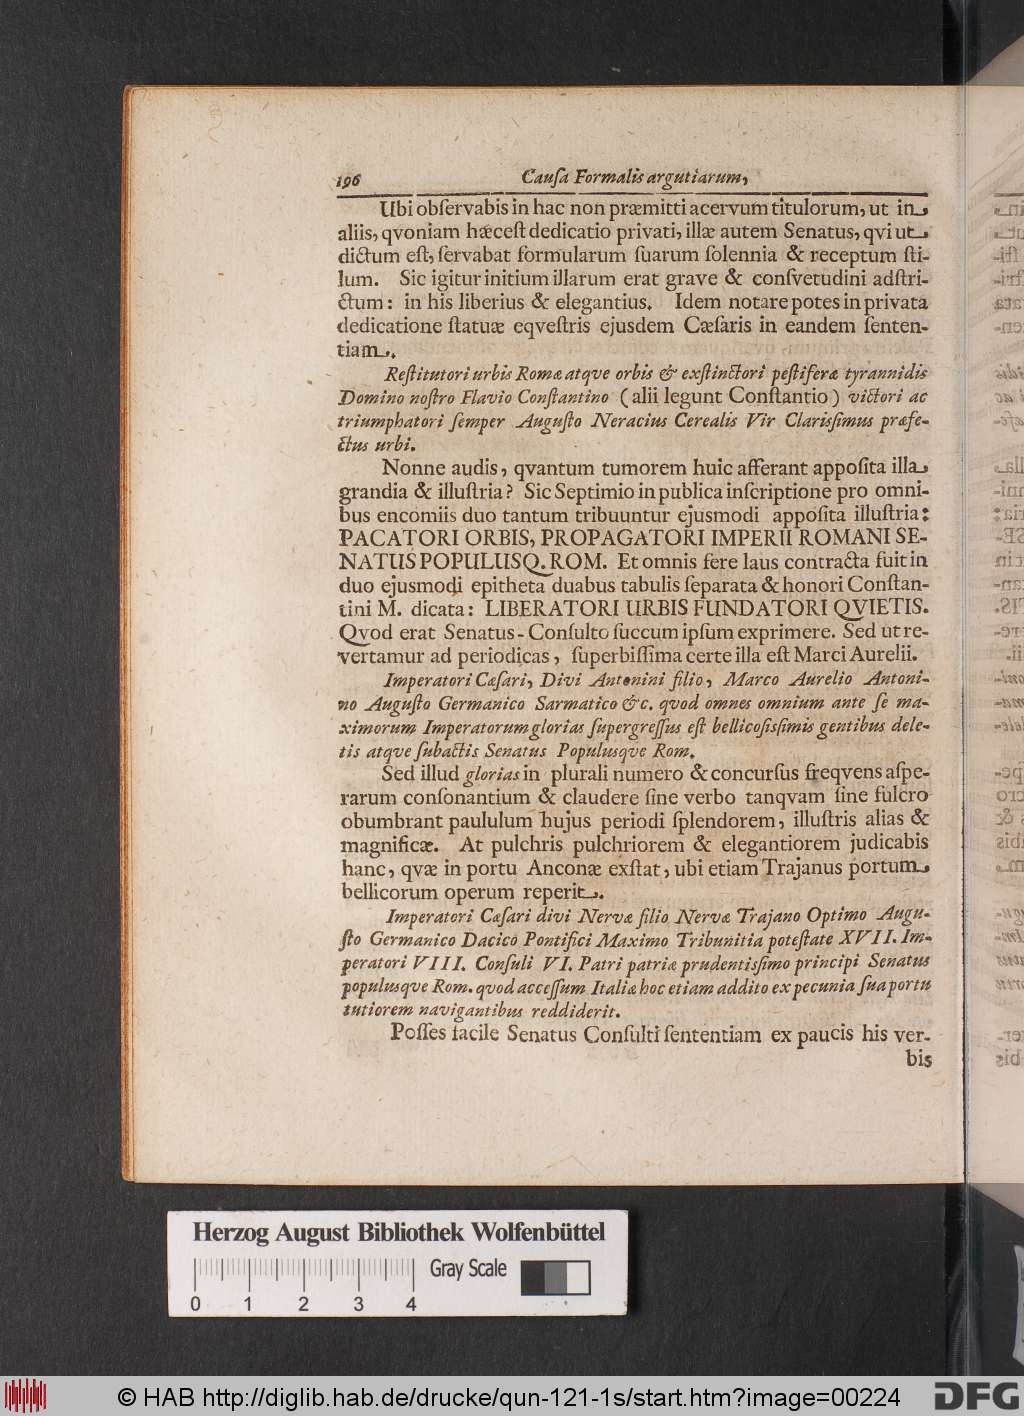 196 Cauſa Formalis argutiarum,
Ubi obſervabis in hac non præmitti acervum titulorum, ut in
aliis, qvoniam hæceſt dedicatio privati, illæ autem Senatus, qvi ut
dictum eſt, ſervabat formularum ſuarum ſolennia & receptum ſti-
lum. Sic igitur initium illarum erat grave & conſvetudini adſtri-
ctum: in his liberius & elegantius. Idem notare potes in privata
dedicatione ſtatuæ eqveſtris ejusdem Cæſaris in eandem ſenten-
tiam.
Reſtitutori urbis Romæ atqve orbis & exſtinctori peſtiferæ tyrannidis
Domino noſtro Flavio Conſtantino (alii legunt Conſtantio) victori ac
triumphatori ſemper Auguſto Neracius Cerealis Vir Clarisſimus præfe-
ctus urbi.
Nonne audis, qvantum tumorem huic afferant appoſita illa
grandia & illuſtria? Sic Septimio in publica inſcriptione pro omni-
bus encomiis duo tantum tribuuntur ejusmodi appoſita illuſtria:
PACATORI ORBIS, PROPAGATORI IMPERII ROMANI SE-
NATUS POPULUSQ. ROM. Et omnis fere laus contracta fuit in
duo ejusmodi epitheta duabus tabulis ſeparata & honori Conſtan-
tini M. dicata: LIBERATORI URBIS FUNDATORI QVIETIS.
Qvod erat Senatus-Conſulto ſuccum ipſum exprimere. Sed ut re-
vertamur ad periodicas, ſuperbiſſima certe illa eſt Marci Aurelii.
Imperatori Cæſari, Divi Antonini filio, Marco Aurelio Antoni-
no Auguſto Germanico Sarmatico &c. qvod omnes omnium ante ſe ma-
ximorum Imperatorum glorias ſupergreſſus eſt bellicoſisſimis gentibus dele-
tis atqve ſubactis Senatus Populusqve Rom.
Sed illud glorias in plurali numero & concurſus freqvens aſpe-
rarum conſonantium & claudere ſine verbo tanqvam ſine fulcro
obumbrant paululum hujus periodi ſplendorem, illuſtris alias &
magnificæ. At pulchris pulchriorem & elegantiorem judicabis
hanc, qvæ in portu Anconæ exſtat, ubi etiam Trajanus portum
bellicorum operum reperit.
Imperatori Cæſari divi Nervæ filio Nervæ Trajano Optimo Augu-
ſto Germanico Dacico Pontifici Maximo Tribunitia poteſtate XVII. Im-
peratori VIII. Conſuli VI. Patri patriæ prudentisſimo principi Senatus
populusqve Rom. qvod acceſſum Italiæ hoc etiam addito ex pecunia ſua portu
tutiorem navigantibus reddiderit.
Poſſes facile Senatus Conſulti ſententiam ex paucis his ver-
bis
Herzog August Bibliothek Wolfenbüttel
Gray Scale
0 1 2 3 4
© HAB http://diglib.hab.de/drucke/qun-121-1s/start.htm?image=00224
DFG